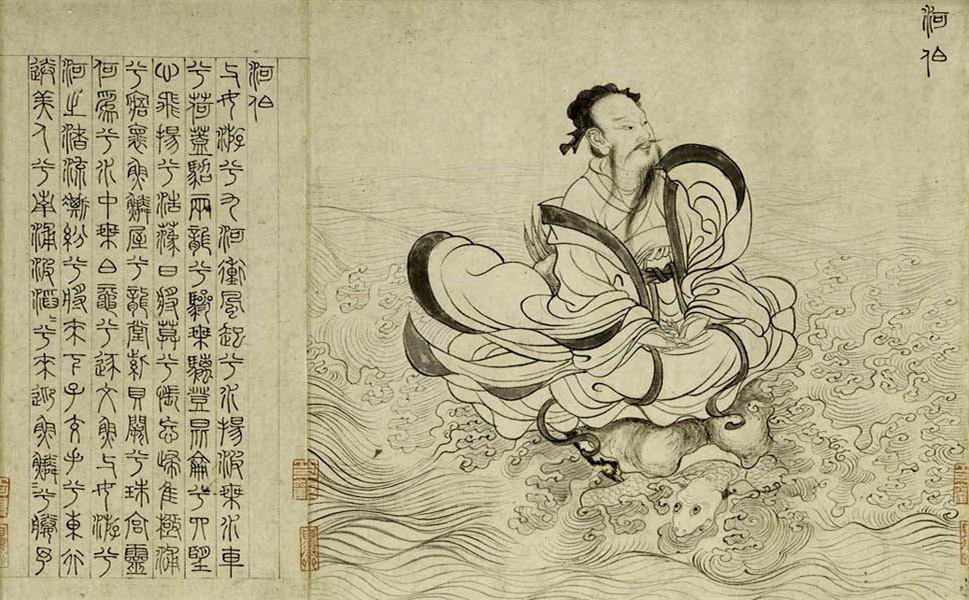 河伯
河伯
与女游兮九河衝風起兮水揚波乘水車
兮荷蓋駕兩龍兮驂乘螭登昆侖兮四望
心飛揚兮浩蕩日將莫兮悵忘歸惟極浦
兮寤褱魚鱗屋兮龍堂紫貝闕兮珠宮靈
何爲兮水中乘白黿兮逐文魚与女游兮
河之渚流澌紛兮將來下子交手兮東行
送美人兮南浦波滔〻兮來迎魚鱗兮媵予